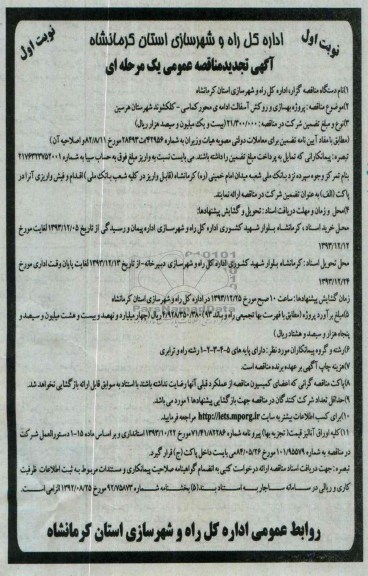 نوبت اول
اداره کل راه و شهرسازی استان کرمانشاه
نوبت اول
آگهی تجدیدمناقصه عمومی یک مرحله ای
۱)نام دستگاه مناقصه گزار:اداره کل راه و شهرسازی استان کرمانشاه
۲)موضوع مناقصه : پروژه بهسازی و روکش آسفالت ادامه ی محور کماسی - کلکشوند شهرستان هرسین
۳)نوع و مبلغ تضمین شرکت در مناقصه : ۲۱/۳۰۰/۰۰۰ (بیست و یک میلیون و سیصد هزار ریال)
(مطابق با مفاد آیین نامه تضمین برای معاملات دولتی مصوبه هیات وزیران به شماره ۴۲۹۵۶/ت۲۸۴۹۳ه مورخ ۸۲/۸/۱۱ و اصلاحیه آن)
تبصره : پیمانکارانی که تمایل به پرداخت مبلغ تضمین را داشته باشند. می بایست نسبت به واریز مبلغ فوق به حساب سیبا به شماره ۲۱۷۶۴۳۳۷۵۲۰۰۱
بنام تمرکز وجوه سپرده نزد بانک ملی شعبه میدان امام خمینی (ره) کرمانشاه (قابل واریز در کلیه شعب بانک ملی) اقدام و فیش واریزی آنرا در
پاکت (الف) به عنوان تضمین شرکت در مناقصه ارائه نمایند.
۴)محل و زمان و مهلت دریافت اسناد : تحویل و گشایش پیشنهادها:
محل خرید اسناد : کرمانشاه بلوار شهید کشوری اداره کل راه و شهرسازی اداره پیمان و رسیدگی از تاریخ ۱۳۹۳/۱۲/۰۵ لغایت مورخ
۱۳۹۳/۱۲/۱۲
محل تحویل اسناد : کرمانشاه بلوار شهید کشوری اداره کل راه و شهرسازی دبیرخانه - از تاریخ ۱۳۹۳/۱۲/۱۳ لغایت پایان وقت اداری مورخ
۱۳۹۳/۱۲/۲۴
زمان گشایش پیشنهادها : ساعت ۱۰ صبح مورخ ۱۳۹۳/۱۲/۲۵ در اداره کل راه و شهرسازی استان کرمانشاه
۵)مبلغ برآورد پروژه (مطابق با فهرست بها تجمیعی راه و باند ۹۳)
۶)رشته و گروه پیمانکاران مورد نظر : دارای پایه های ۵-۴-۳-۲-۱ رشته راه و ترابری
۷)هزینه چاپ آگهی بر عهده برنده مناقصه است.
۸)پاکت مناقصه گرانی که اعضای کمیسیون مناقصه از عملکرد قبلی آنها رضایت نداشته باشند با استناد به سوابق قابل ارائه بازگشایی نخواهد شد.
۹)حداقل تعداد شرکت کنندگان در مناقصه جهت بازگشایی پیشنهادها ۱ مورد می باشد.
۱۰)برای کسب اطلاعات بیشتر به سایت http://iets.mporg.ir مراجعه فرمایید.
۱۱)کلیه اوراق آنالیز قیمت( تجزیه بها) پیرو نامه شماره ۷۱/۴۱/۸۲۲۸۶ مورخ ۱۳۹۳/۱۰/۲۲ استانداری و بر اساس ماده ۱۵-۱ دستورالعمل شرکت
در مناقصه به شماره ۱۰۱/۹۵۵۷۹ مورخ ۸۴/۰۵/۲۶ می بایست داخل پاکت (ج) قرار گیرد.
تبصره : جهت دریافت اسناد مناقصه ارائه درخواست کتبی به انضمام گواهینامه صلاحیت پیمانکاری و مستندات مربوط به ثبت اطلاعات ظرفیت
کاری و ریالی در سامانه ساجار به استناد بند (۵) بخشنامه شماره ۹۲/۷۵۸۷۳ مورخ ۱۳۹۲/۰۸/۲۵ الزامی است.
روابط عمومی اداره کل راه و شهرسازی استان کرمانشاه